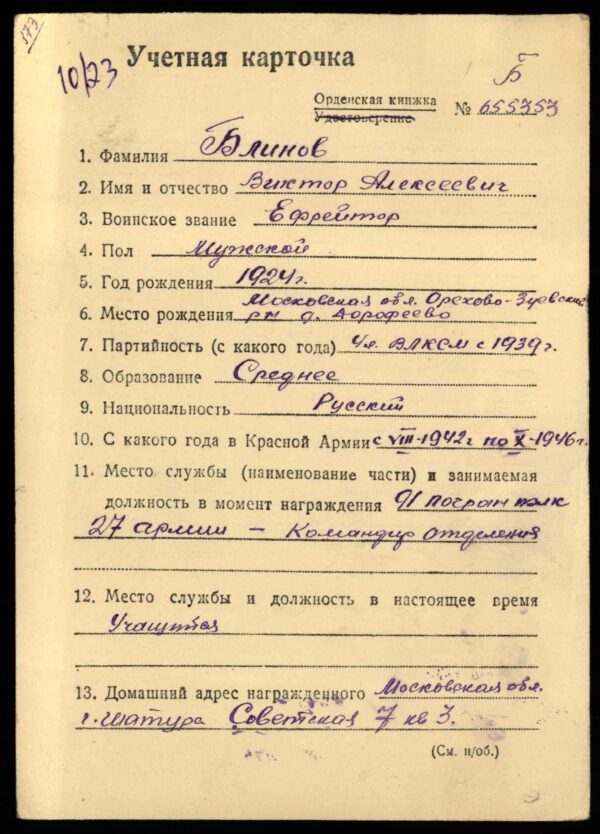 373
10/23 Учетная карточка
Б
Орденская книжка
Удостоверение № 655353
1. Фамилия Блинов
2. Имя и отчество Виктор Алексеевич
3. Воинское звание Ефрейтор
4. Пол Мужской
5. Год рождения 1924г.
Московская обл. Орехово-Зуевский
6. Место рождения р-н д. Дорофеево
7. Партийность (с какого года) чл. ВЛКСМ с 1939г.
8. Образование Среднее
9. Национальность Русский
10. С какого года в Красной Армии с VIII-1942г по X-1946г.
11. Место службы (наименование части) и занимаемая
должность в момент награждения 91 погран полк
27 армии – Командир отделения
12. Место службы и должность в настоящее время
Учащийся
13. Домашний адрес награжденного Московская обл.
г. Шатура Советская 7 кв 3.
(См. н/об.)